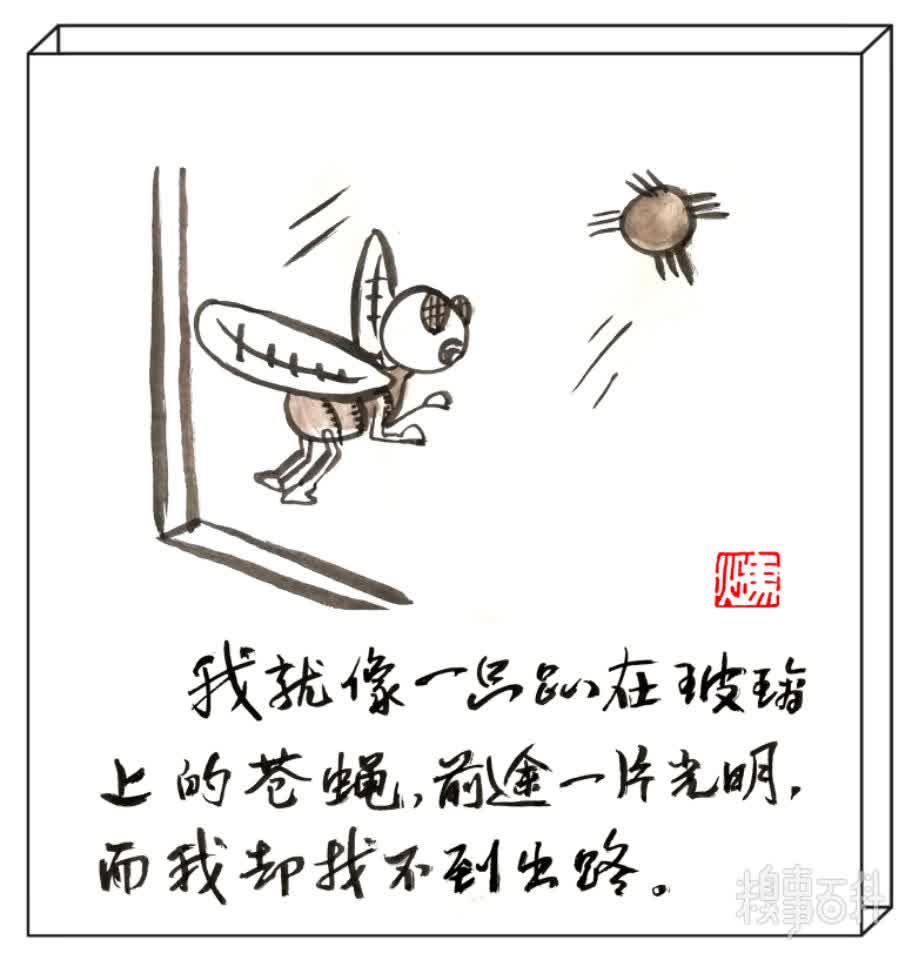 我就像一只趴在玻璃
上的苍蝇,前途一片光明,
而我却找不到出路。
糗事百科